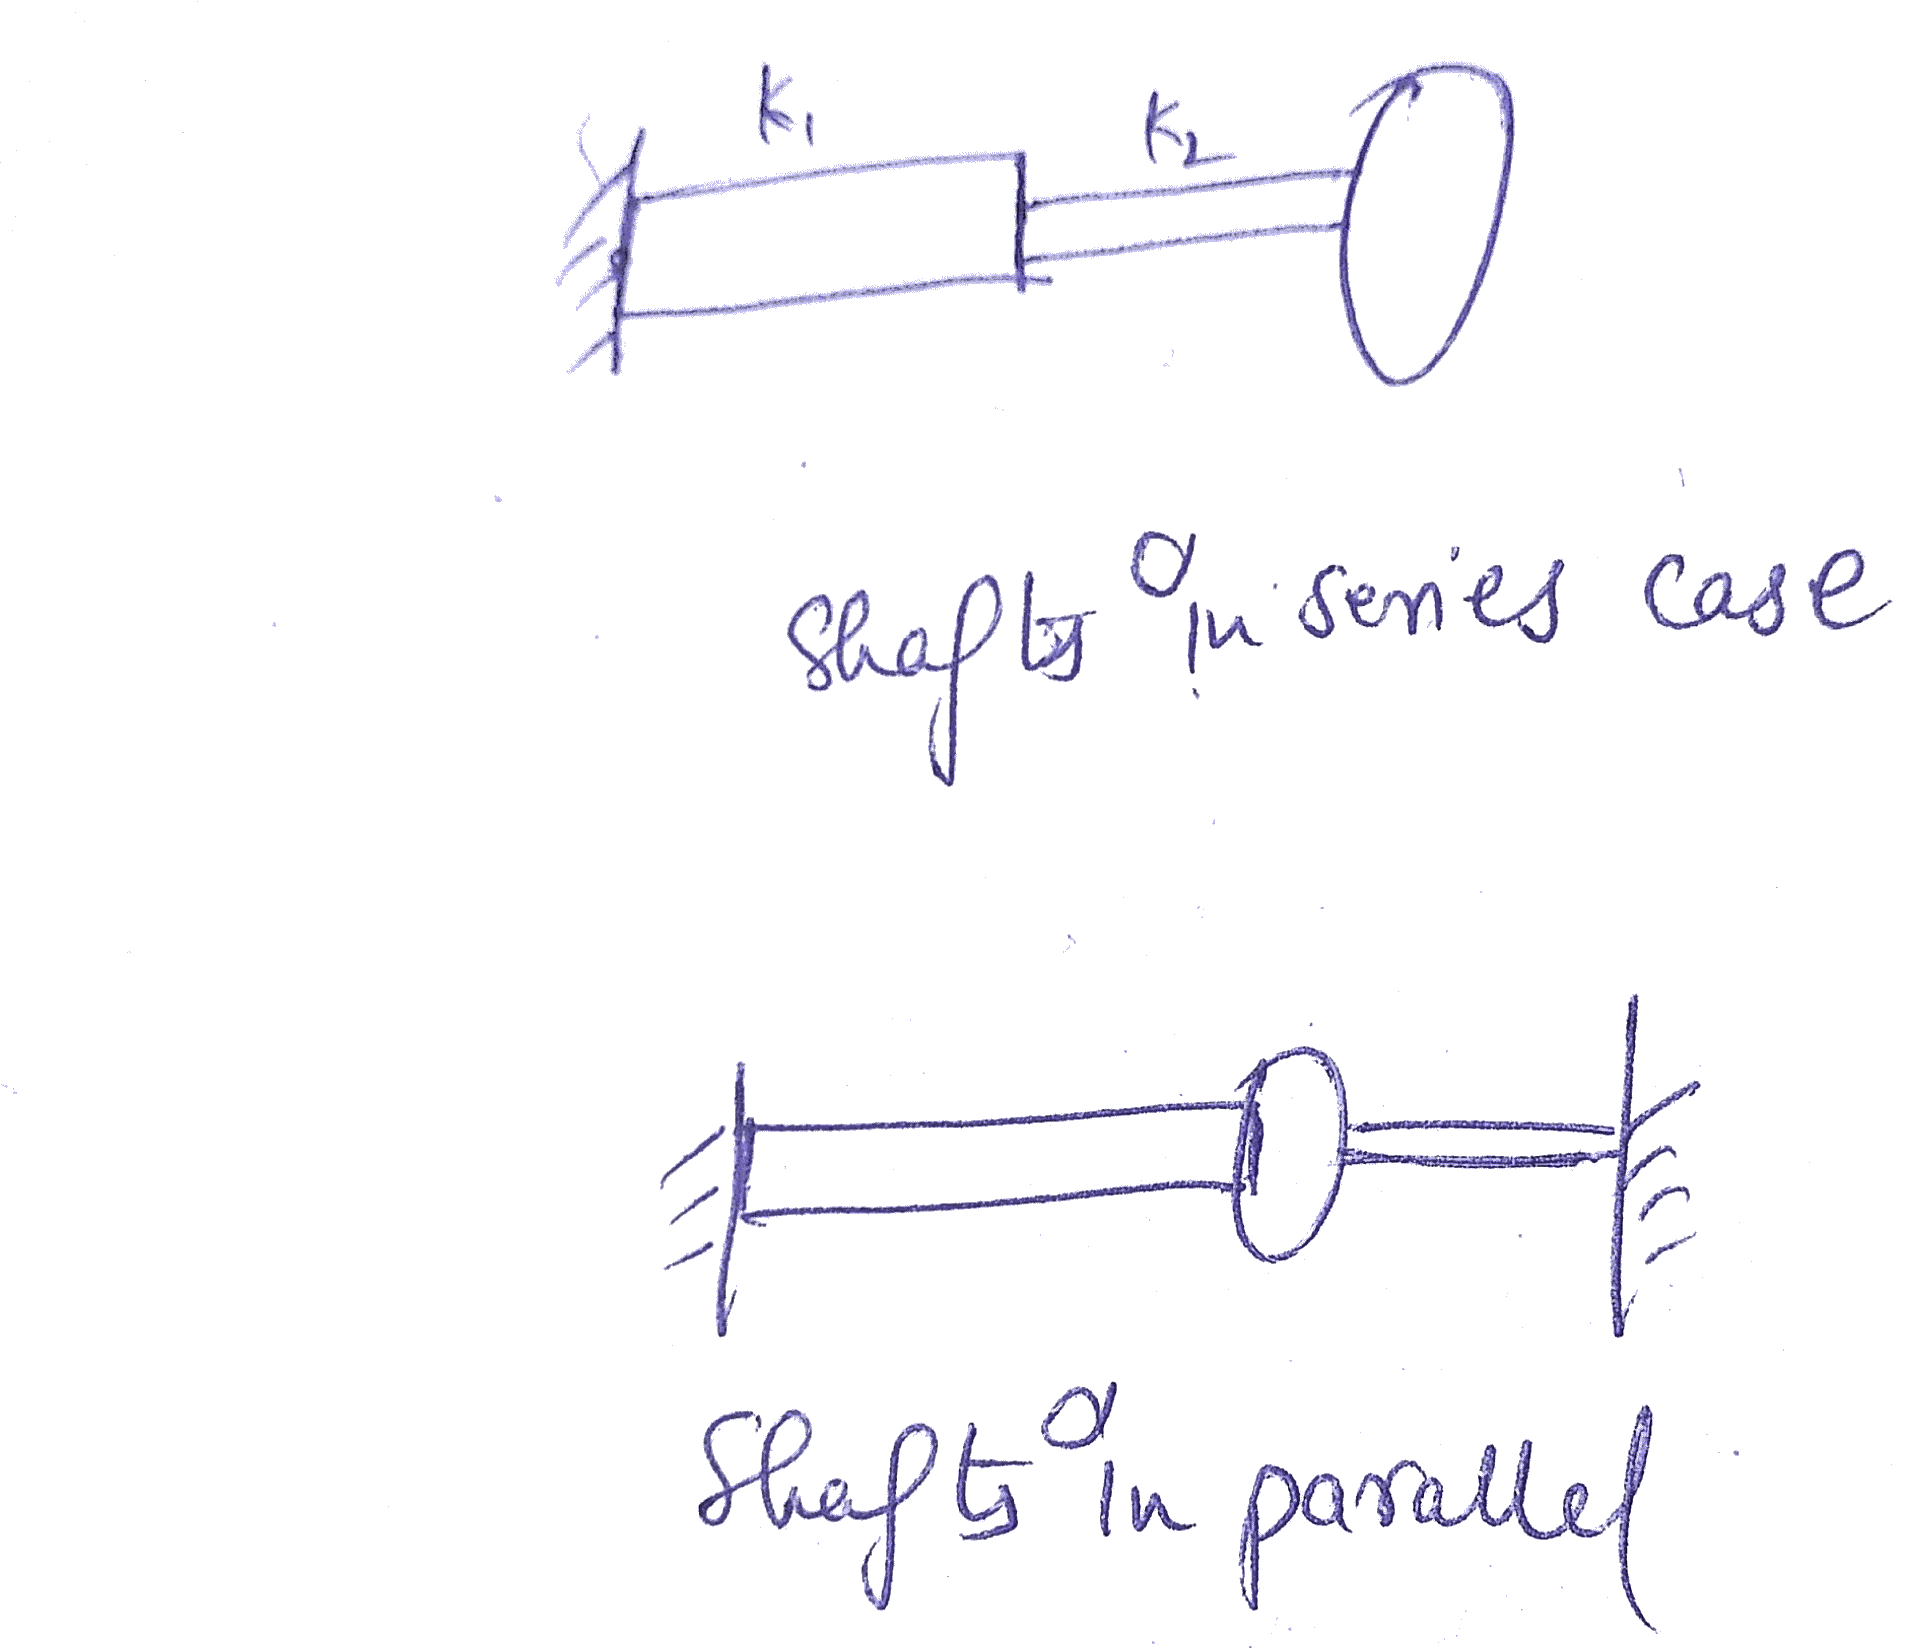 K₁ K₂
Shafts in series case
Shafts in parallel